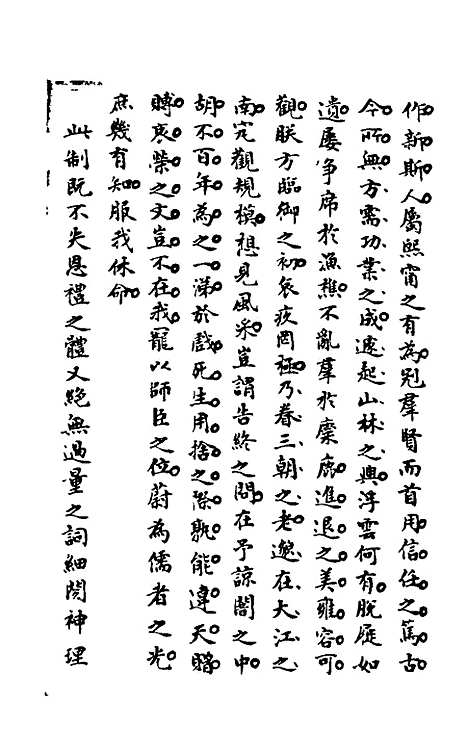 作新斯人屬熙甯之有為冠羣賢而首用信任之篤古
今所無方需功業之成遽起山林之興浮雲何有脫屣如
遺屢争席於漁樵不亂羣於麋鹿進退之美雍容可
觀朕方臨御之初哀疚罔極乃眷三朝之老邈在大江之
南究觀規模想見風采豈謂告終之問在予諒闇之中
胡不百年為之一涕於戲死生用捨之際孰能違天贈
賻哀榮之文豈不在我寵以師臣之位蔚為儒者之光
庶幾有知服我休命
此制既不失恩禮之體又絕無過量之詞細閱神理